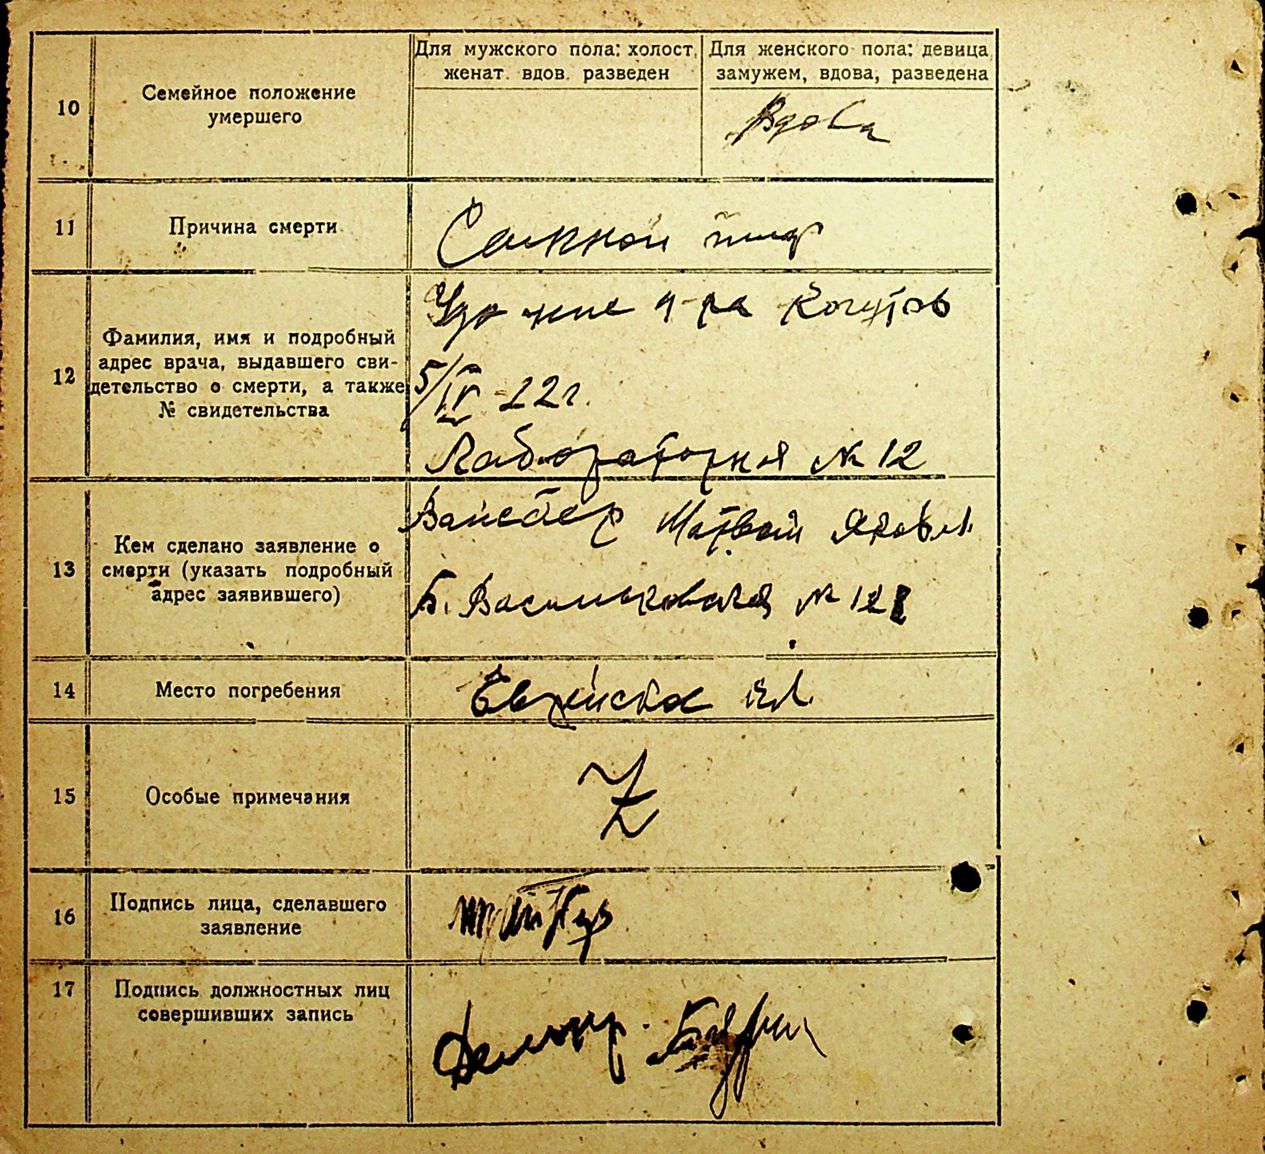 10
Семейное положение
умершего
Для мужского пола: холост,
женат. вдов. разведен
Для женского пола: девица
замужем, вдова, разведена
Вдова
11
Причина смерти
Сыпной тиф
12
Фамилия, имя и подробный
адрес врача, выдавшего сви-
детельство о смерти, а также
№ свидетельства
Удо-ние
5/IV 22 г.
Лабораторная № 12
13
Кем сделано заявление о
смерти (указать подробный
адрес заявившего)
Вайсбер Матвей Яковл.
Б. Васильковская № 12
14
Место погребения
Еврейское кл.
15
Особые примечания
Z
16
Подпись лица, сделавшего
заявление
17
Подпись должностных лиц
совершивших запись